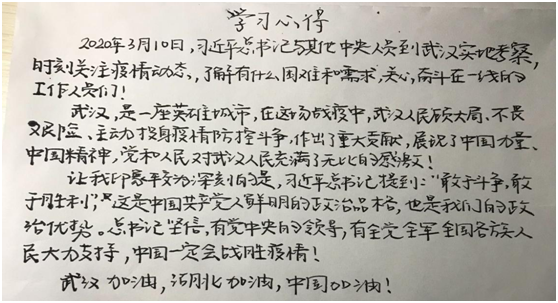 学习心得
2020年3月10日，习近平总书记与其他中央人员到武汉实地考察，
时刻关注疫情动态，了解有什么困难和需求，关心奋斗在一线的
工作人员们！
武汉，是一座英雄城市，在这场战疫中，武汉人民顾大局、不畏
艰险、主动投身疫情防控斗争，作出了重大贡献，展现了中国力量、
中国精神，党和人民对武汉人民充满了无比的感激！
让我印象较为深刻的是，习近平总书记提到："敢于斗争，敢
于胜利"，这是中国共产党人鲜明的政治品格，也是我们的政
治优势。总书记坚信，有党中央的领导，有全党全军全国各族人
民大力支持，中国一定会战胜疫情！
武汉加油，湖北加油，中国加油！